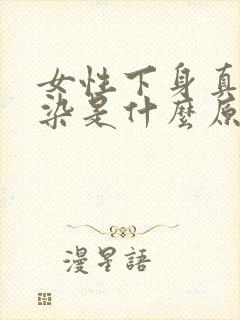 女性下身真
染是什麼原
漫星語